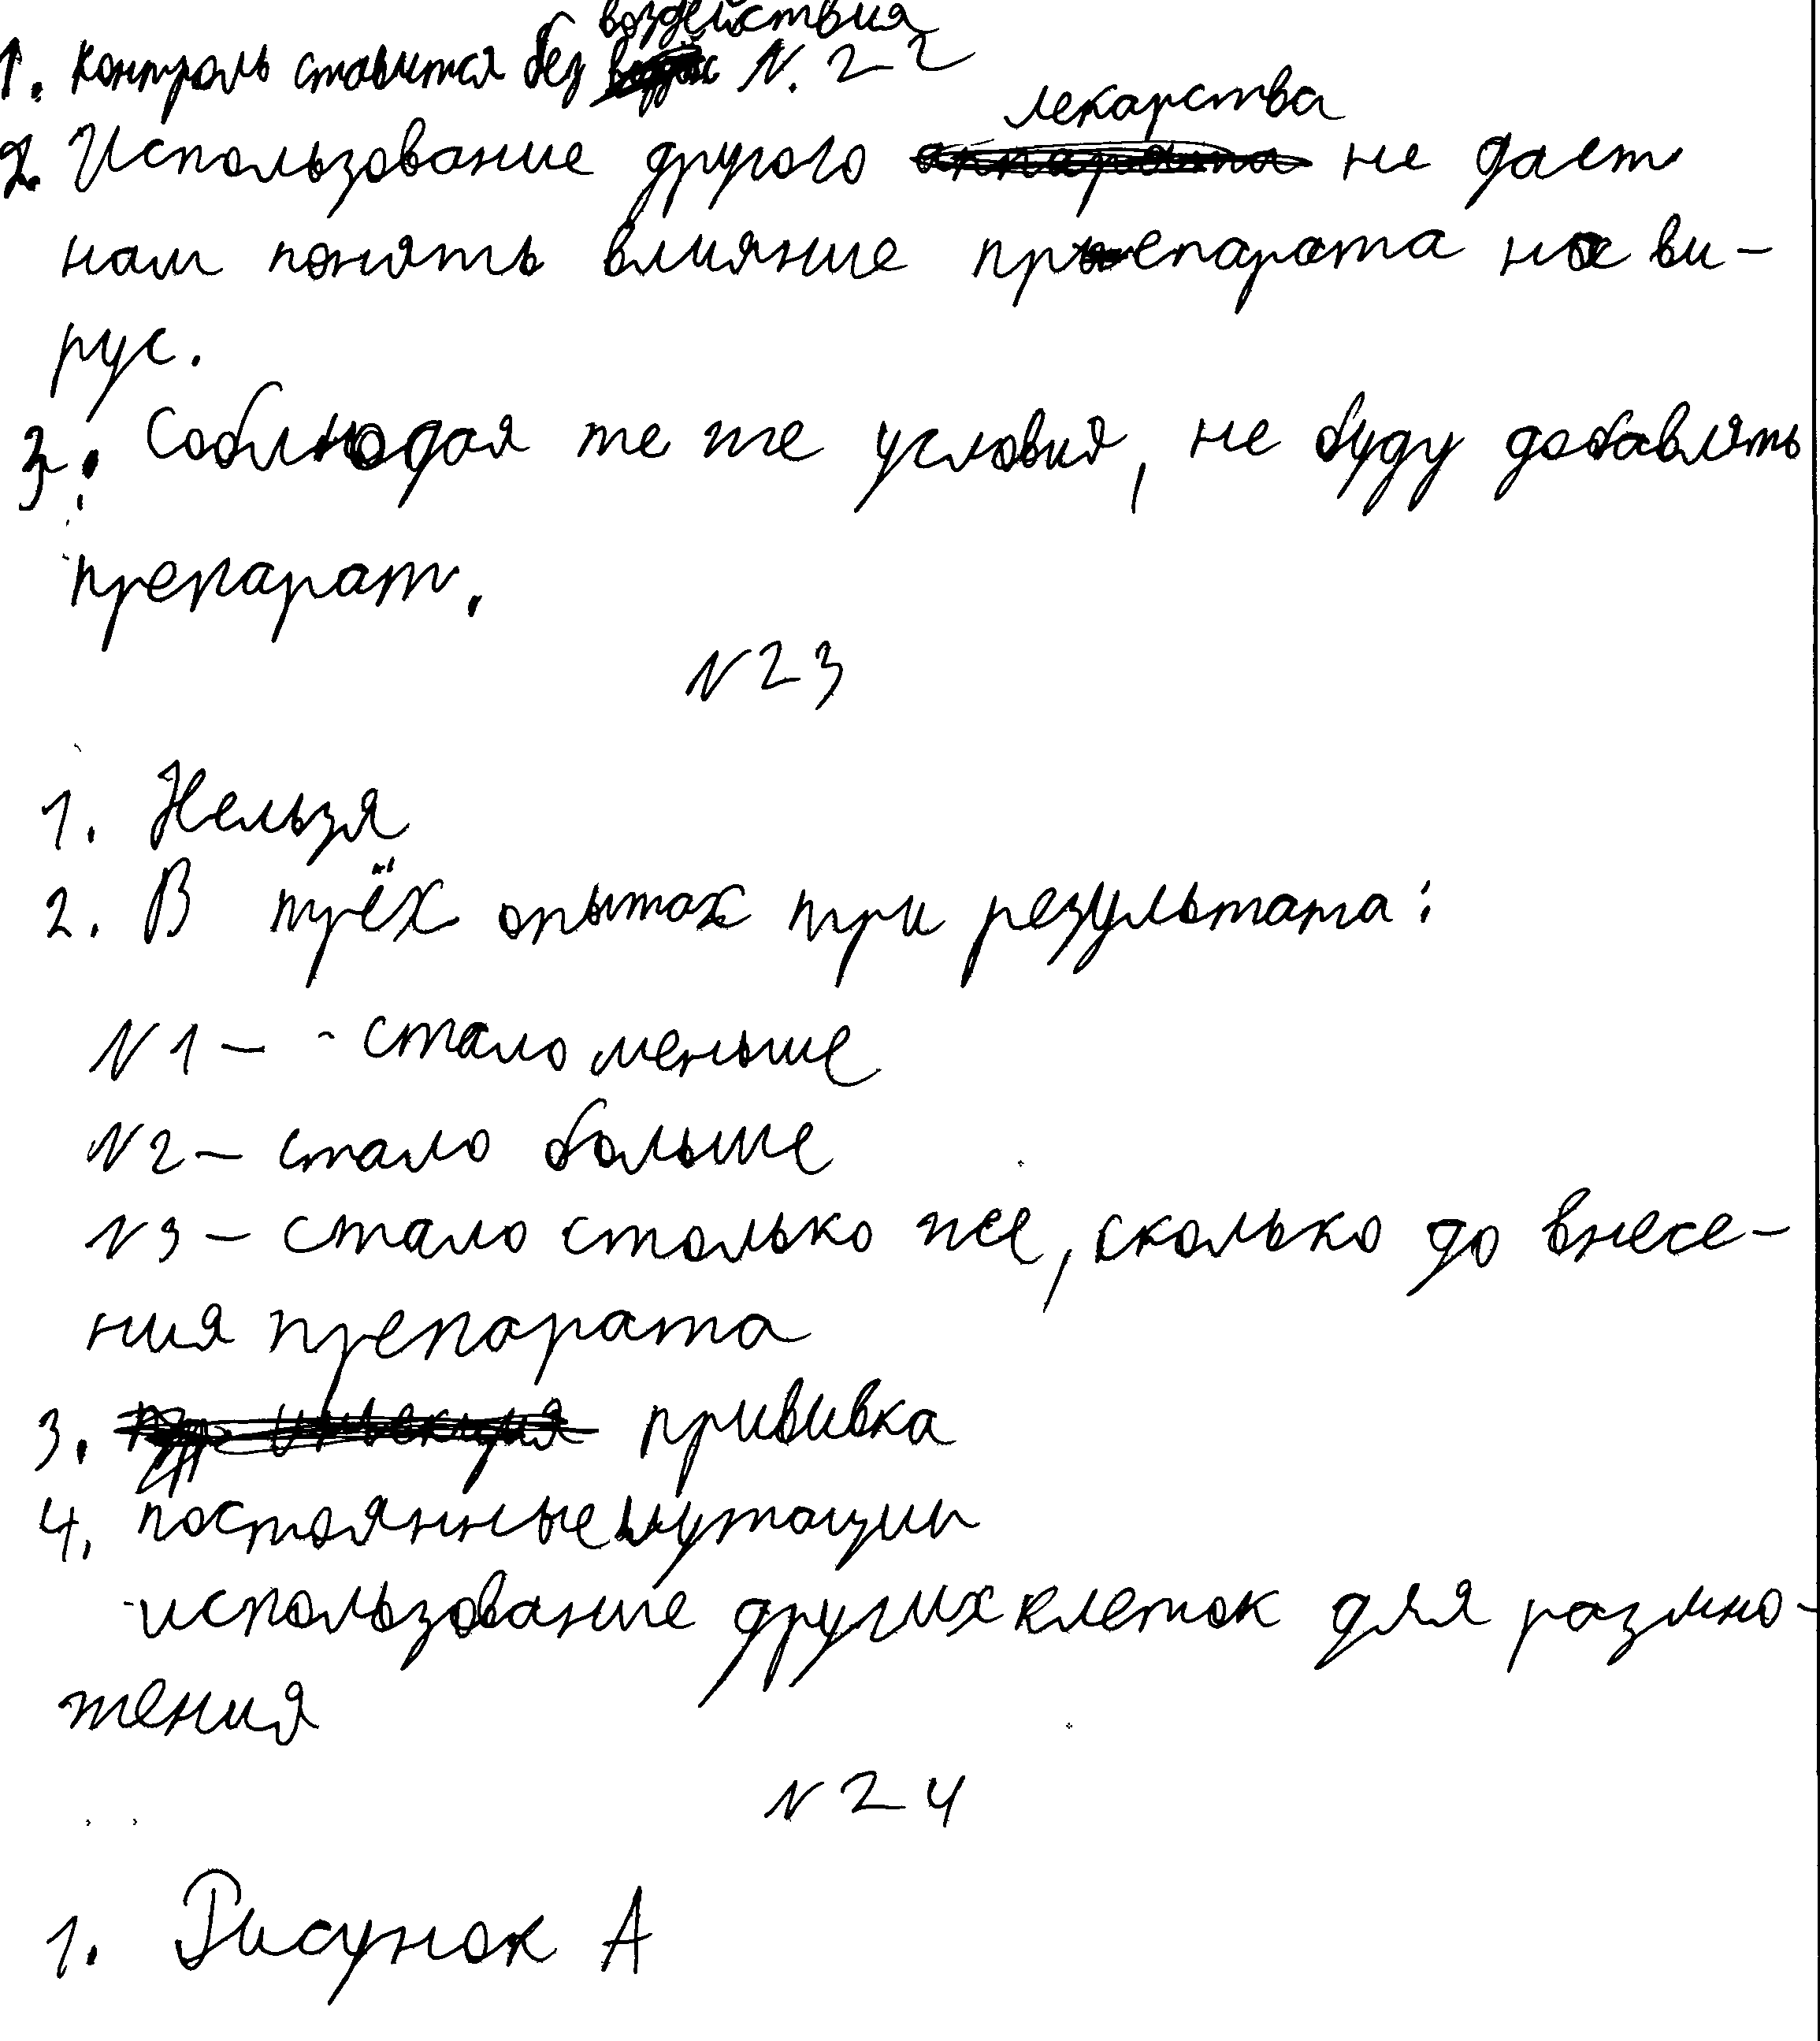 воздействия
1. контроль ставится без N. 22
лекарства
2. Использование другого аппарата не дает
нам понять влияние препарата на ви-
рус.
3. Соблюдая те же условия, не буду добавлять
препарат.
N23
1. Нельзя
2. В трёх опытах три результата:
N1 - стало меньше
N2 - стало больше
N3 - стало столько же, сколько до внесе-
ния препарата
3. инъекция прививка
4. постоянные мутации
использование других клеток для размно-
жения
N24
1. Рисунок А